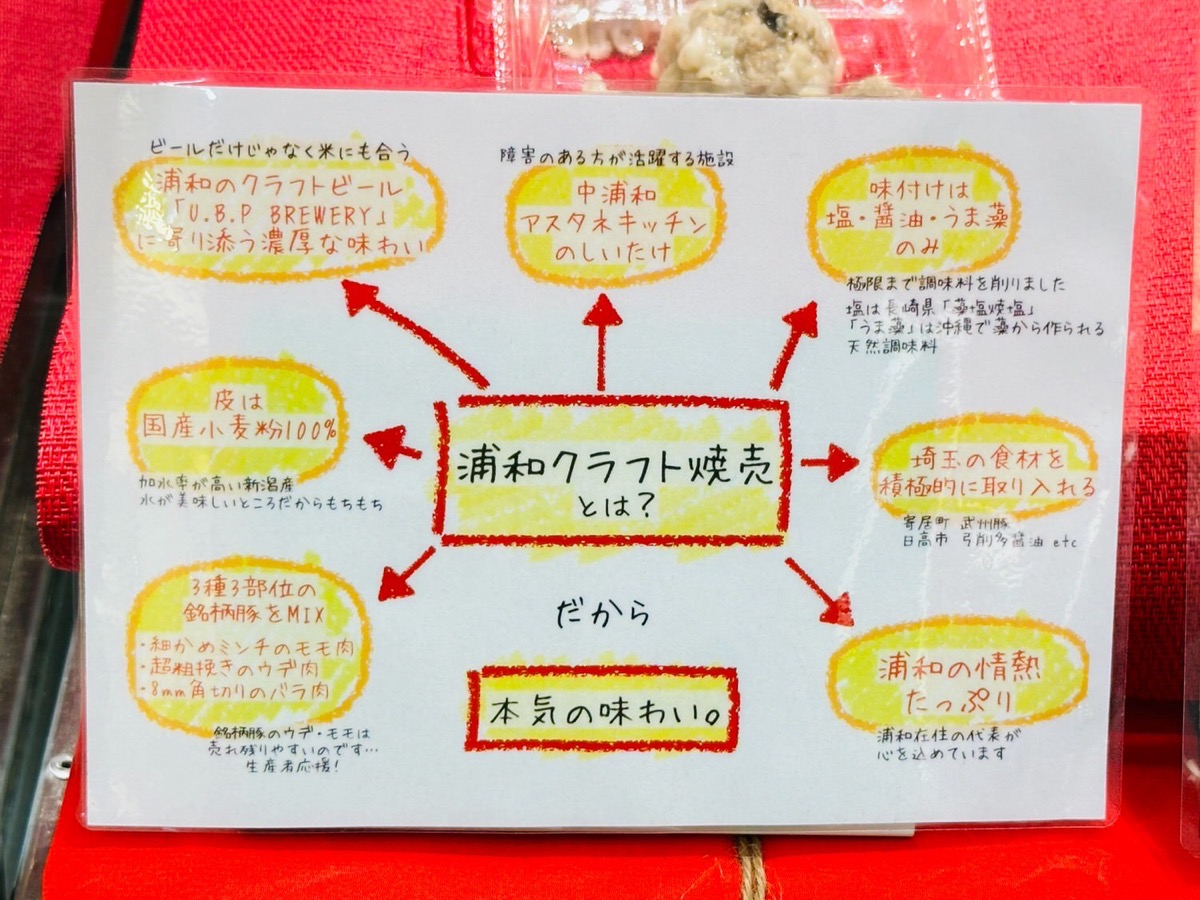 ビールだけじゃなく米にも合う
浦和のクラフトビール
「U.B.P BREWERY」
に寄り添う濃厚な味わい
障害のある方が活躍する施設
中浦和
アスタネキッチン
のしいたけ
味付けは
塩・醤油・うま藻
のみ
極限まで調味料を削りました
塩は長崎県「藻塩焼塩」
「うま藻」は沖縄で藻から作られる
天然調味料
皮は
国産小麦粉100%
加水率が高い新潟産
水が美味しいところだからもちもち
浦和クラフト焼売
とは?
埼玉の食材を
積極的に取り入れる
寄居町 武州豚
日高市 弓削多醤油 etc
3種3部位の
銘柄豚をMIX
・細かめミンチのモモ肉
・超粗挽きのウデ肉
・8mm角切りのバラ肉
銘柄豚のウデ・モモは
売れ残りやすいのです…
生産者応援!
だから
本気の味わい。
浦和の情熱
たっぷり
浦和在住の代表が
心を込めています